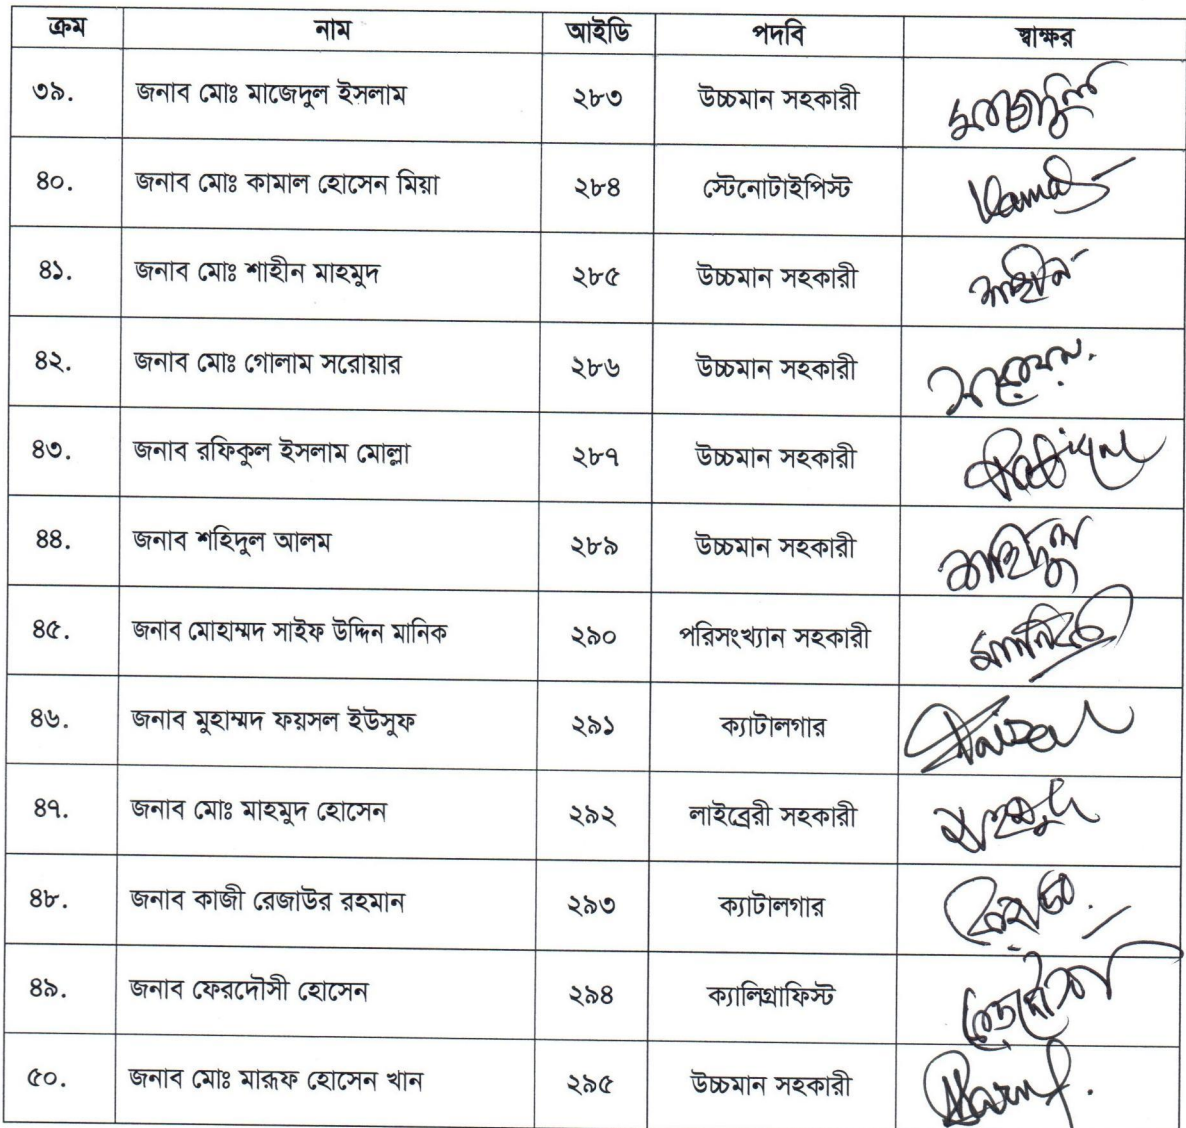 ক্রম নাম আইডি পদবি স্বাক্ষর
৩৯. জনাব মোঃ মাজেদুল ইসলাম ২৮৩ উচ্চমান সহকারী
৪০. জনাব মোঃ কামাল হোসেন মিয়া ২৮৪ স্টেনোটাইপিস্ট Kamal
৪১. জনাব মোঃ শাহীন মাহমুদ ২৮৫ উচ্চমান সহকারী শাহীন
৪২. জনাব মোঃ গোলাম সরোয়ার ২৮৬ উচ্চমান সহকারী
৪৩. জনাব রফিকুল ইসলাম মোল্লা ২৮৭ উচ্চমান সহকারী Rafiqul
৪৪. জনাব শহিদুল আলম ২৮৯ উচ্চমান সহকারী
৪৫. জনাব মোহাম্মদ সাইফ উদ্দিন মানিক ২৯০ পরিসংখ্যান সহকারী মানিক
৪৬. জনাব মুহাম্মদ ফয়সল ইউসুফ ২৯১ ক্যাটালগার Faisal
৪৭. জনাব মোঃ মাহমুদ হোসেন ২৯২ লাইব্রেরী সহকারী মাহমুদ
৪৮. জনাব কাজী রেজাউর রহমান ২৯৩ ক্যাটালগার
৪৯. জনাব ফেরদৌসী হোসেন ২৯৪ ক্যালিগ্রাফিস্ট
৫০. জনাব মোঃ মারূফ হোসেন খান ২৯৫ উচ্চমান সহকারী